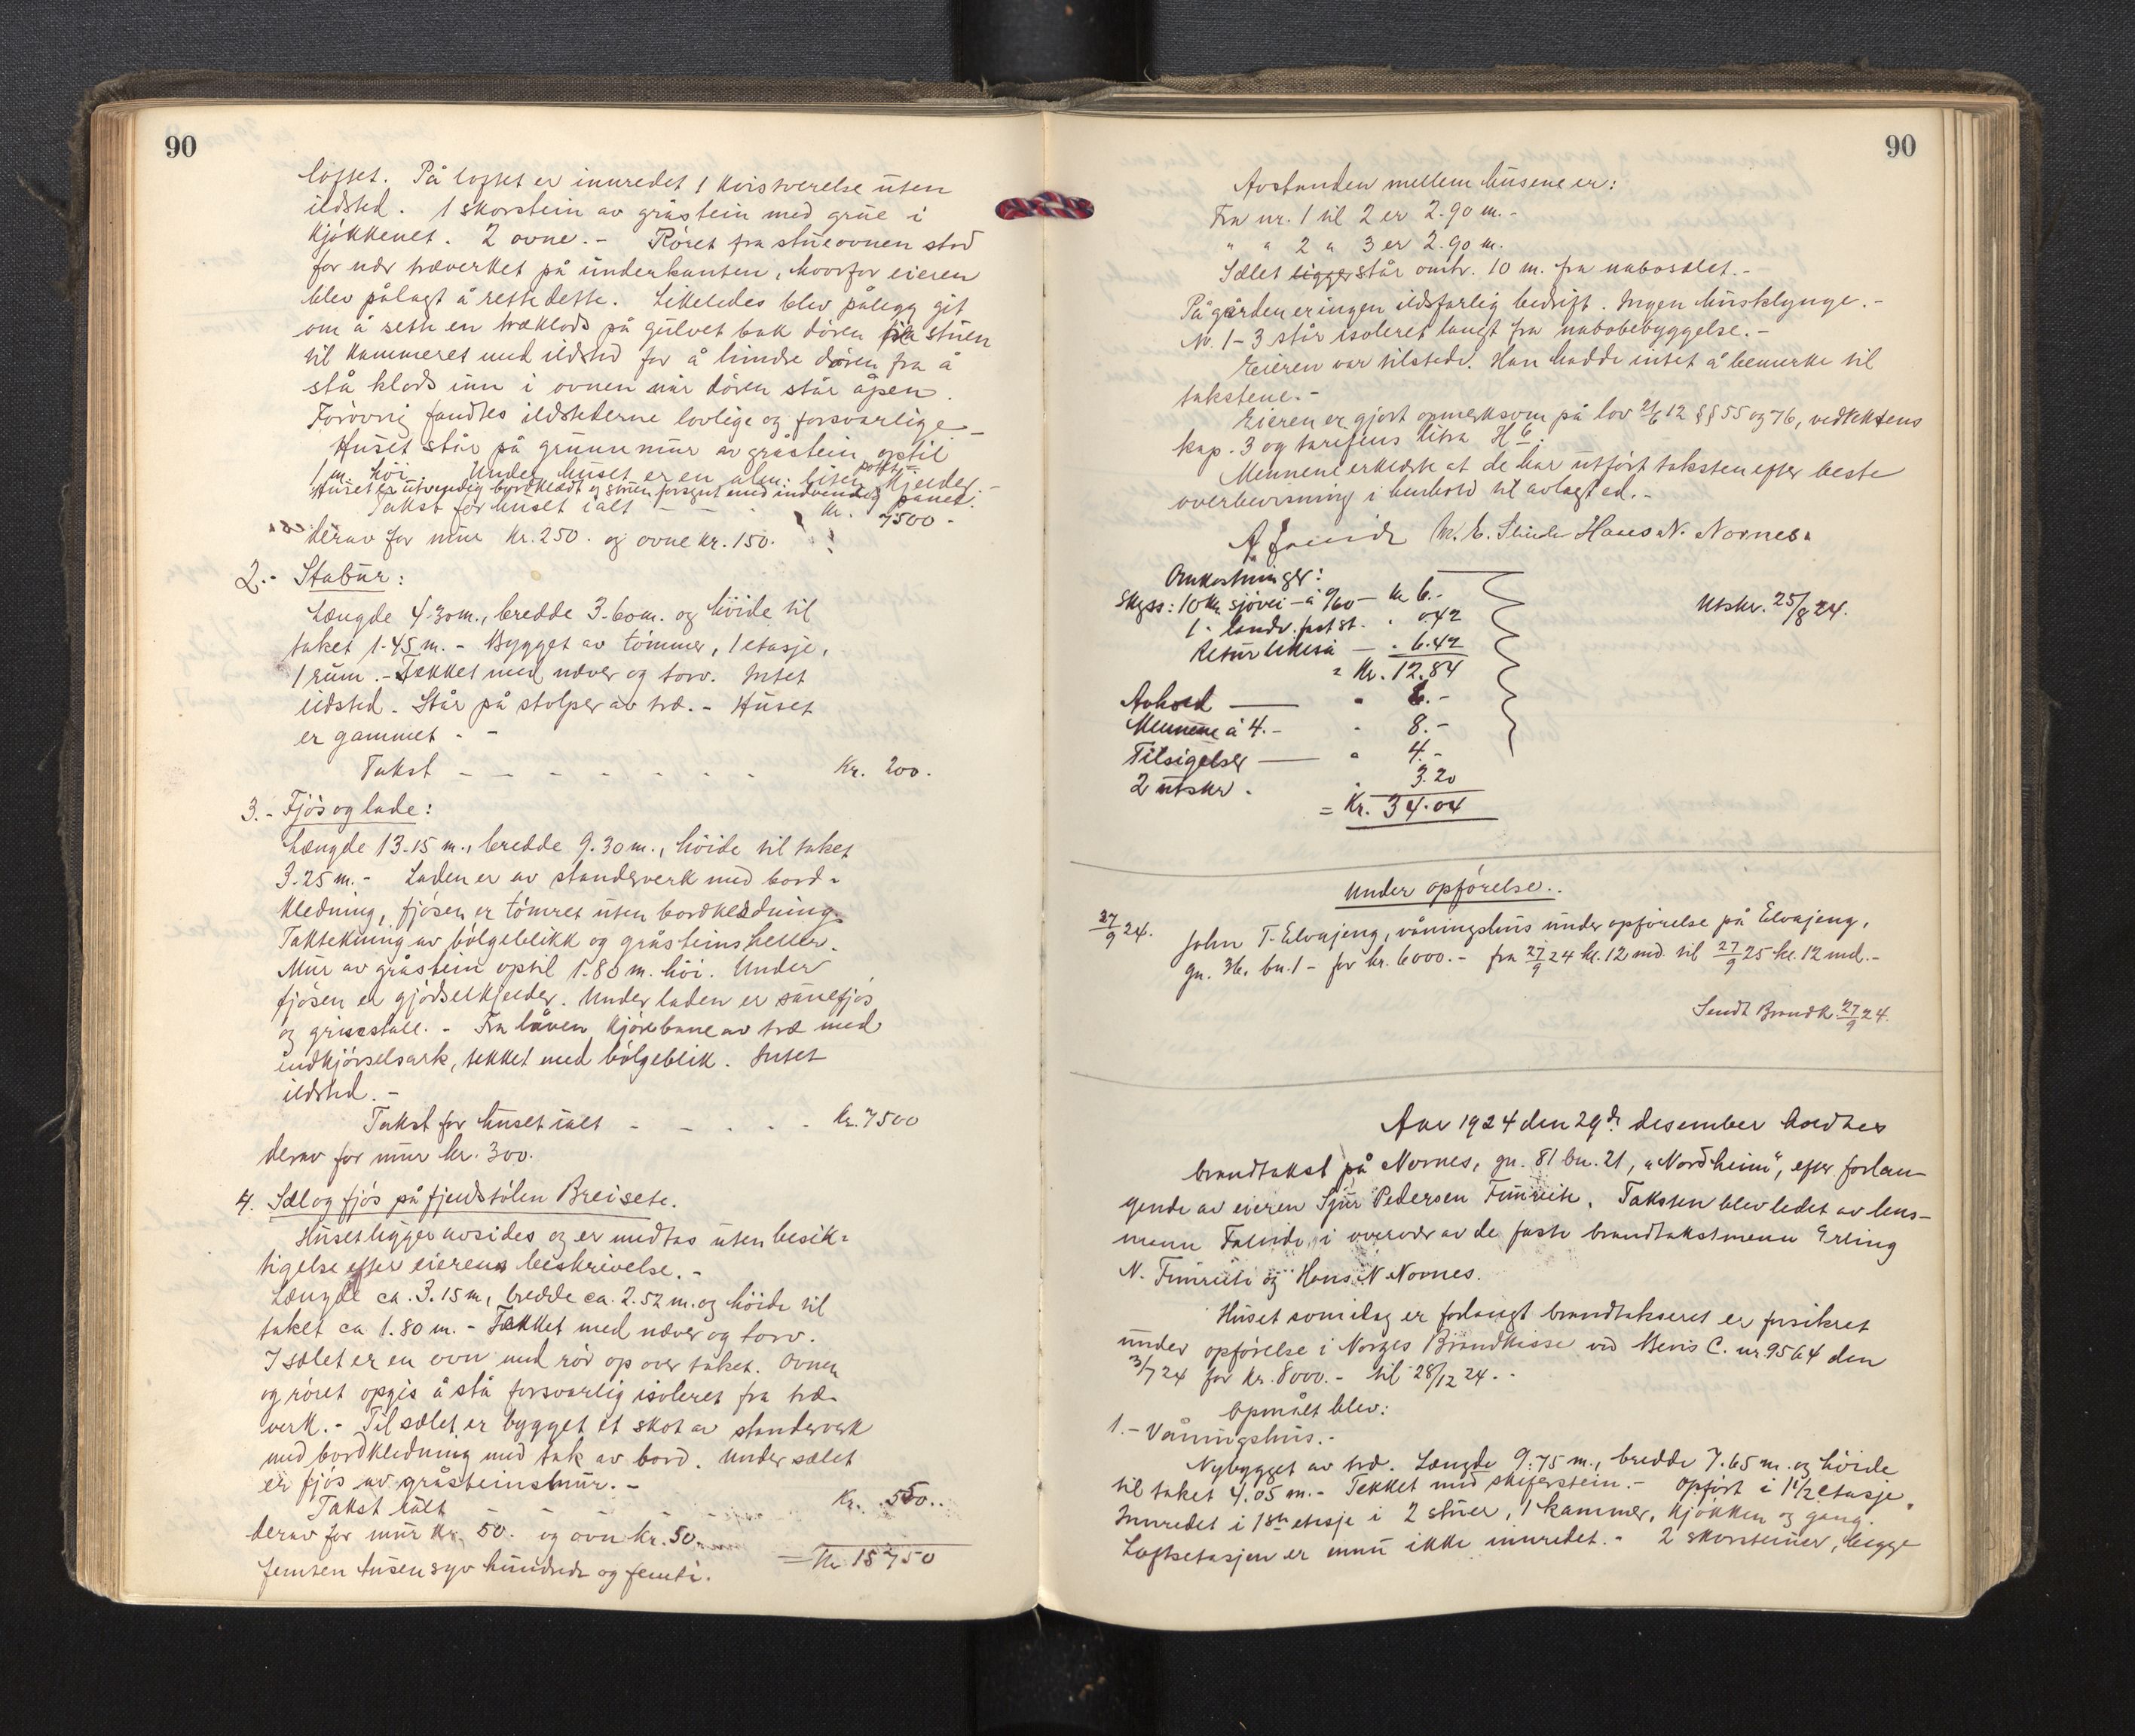 90
loftet. På loftet er innredet 1 kvistverelse uten
ildsted. 1 skorstein av gråstein med grue i
kjøkkenet. 2 ovne.- Røret fra stueovnen stod
for nær træverket på underkanten, hvorfor eieren
blev pålagt å rette dette. Likeledes blev pålegg git
om å sette en træklods på gulvet bak døren fra stuen
til kammeret med ildsted for å hindre døren fra å
slå klods inn i ovnen når døren står åpen.
Forøvrig fandtes ildstederne lovlige og forsvarlige.-
Huset står på grunnmur av gråstein optil
1 m. høi. Under huset er en alm. liten potet=kjelder.-
Huset er utvendig bordklædt og stuen forsynt med indvendig panel.
Takst for huset ialt - - - kr. 7500.-
derav for mur kr. 250. og ovne kr. 150.
2.- Stabur:
Længde 4.30m., bredde 3.60m. og høide til
taket 1.45 m.- Bygget av tømmer, 1 etasje,
1 rum.- Tækket med næver og torv. Intet
ildsted. Står på stolper av træ.- Huset
er gammet.-
Takst - - - - - - - Kr. 200.
3.- Fjøs og lade:
Længde 13.15 m., bredde 9.30m., høide til taket
3.25 m.- Laden er av standerverk med bord-
kledning, fjøsen er tømret uten bordkledning.
Taktekning av bølgeblikk og gråsteinsheller.
Mur av gråstein optil 1.80 m. høi. Under
fjøsen er gjødselkjelder. Under laden er sauefjøs
og grisestall.- Fra låven kjørebane av træ med
indkjørselsark, tekket med bølgeblik. Intet
ildsted.-
Takst for huset ialt - - - - - kr. 7500
derav for mur kr. 300.
4. Sæl og fjøs på fjeldstølen Breisete.
Huset ligger avsides og er medtas uten besik-
tigelse efter eierens beskrivelse.-
Længde ca. 3.15 m, bredde ca. 2.52 m. og høide til
taket ca 1.80 m.- Tækket med næver og torv.
I sælet er en ovn med rør op over taket. Ovnen
og røret opgis å stå forsvarlig isoleret fra træ-
verk.- Til sælet er bygget et skot av standerverk
med bordkledning med tak av bord. Under sælet
er fjøs av gråsteinsmur.-
Takst ialt - - - - Kr. 550..
derav for mur kr. 50. og ovn kr. 50.
= Kr. 15750
femten tusen syv hundrede og femti.
90
Avstanden mellem husene er:
Fra nr. 1 til 2 er 2.90 m.-
" " 2 " 3 er 2.90 m.
Sælet ligger står omtr. 10 m. fra nabosælet.-
På gården er ingen ildsfarlig bedrift. Ingen husklynge.-
Nr. 1-3 står isoleret langt fra nabobebyggelse.-
Eieren var tilstede. Han hadde intet å bemerke til
takstene.-
Eieren er gjort opmerksom på lov 21/6 12 §§ 55 og 76, vedtektens
kap. 3 og tarifens litra H 6.
Mennene erklærte at de har utført taksten efter beste
overbevisning i henhold til avlagt ed.-
Hans N. Nornes.
Omkostninger:
Skyss: 10 km sjøvei - à 0/60 - kr 6.-
1 - landv. fast st. " 0.42
Retur likeså - " 6.42
= Kr. 12.84
Avhold - " 6.-
Mennene à 4.- " 8.-
Tilsigelser - " 4.-
2 utskr. " 3.20
= Kr. 34.04
Utskr. 25/8 24.
Under opførelse..
27/9 24. John T. Elvajeng, våningshus under opførelse på Elvajeng,
gn. 36, bn. 1 - for kr. 6000.- fra 27/9 24 kl. 12 md. til 27/9 25 kl. 12 md.-
Sendt Brandk. 27/9 24.
Aar 1924 den 29de desember holdtes
brandtakst på Nornes, gn. 81 bn. 21, "Nordheim", efter forlan-
gende av eieren Sjur Pedersen Fimreite. Taksten blev ledet av lens-
mann Faleide, i overvær av de faste brandtakstmenn Erling
N. Fimreite og Hans N Nornes.
Huset som idag er forlangt brandtakseret er forsikret
under opførelse i Norges Brandkasse ved Bevis C. nr. 9564 den
3/7 24 for kr. 8000.- til 28/12 24.-
Opmålt blev:
1.- Våningshus.-
Nybygget av træ. Længde 9.75 m., bredde 7.65 m. og høide
til taket 4.05 m.- Tekket med skiferstein.- Opført i 1 1/2 etasje.
Innredet i 1ste etasje i 2 stuer, 1 kammer, kjøkken og gang.
Loftsetasjen er ennu ikke innredet.- 2 skorsteiner, begge